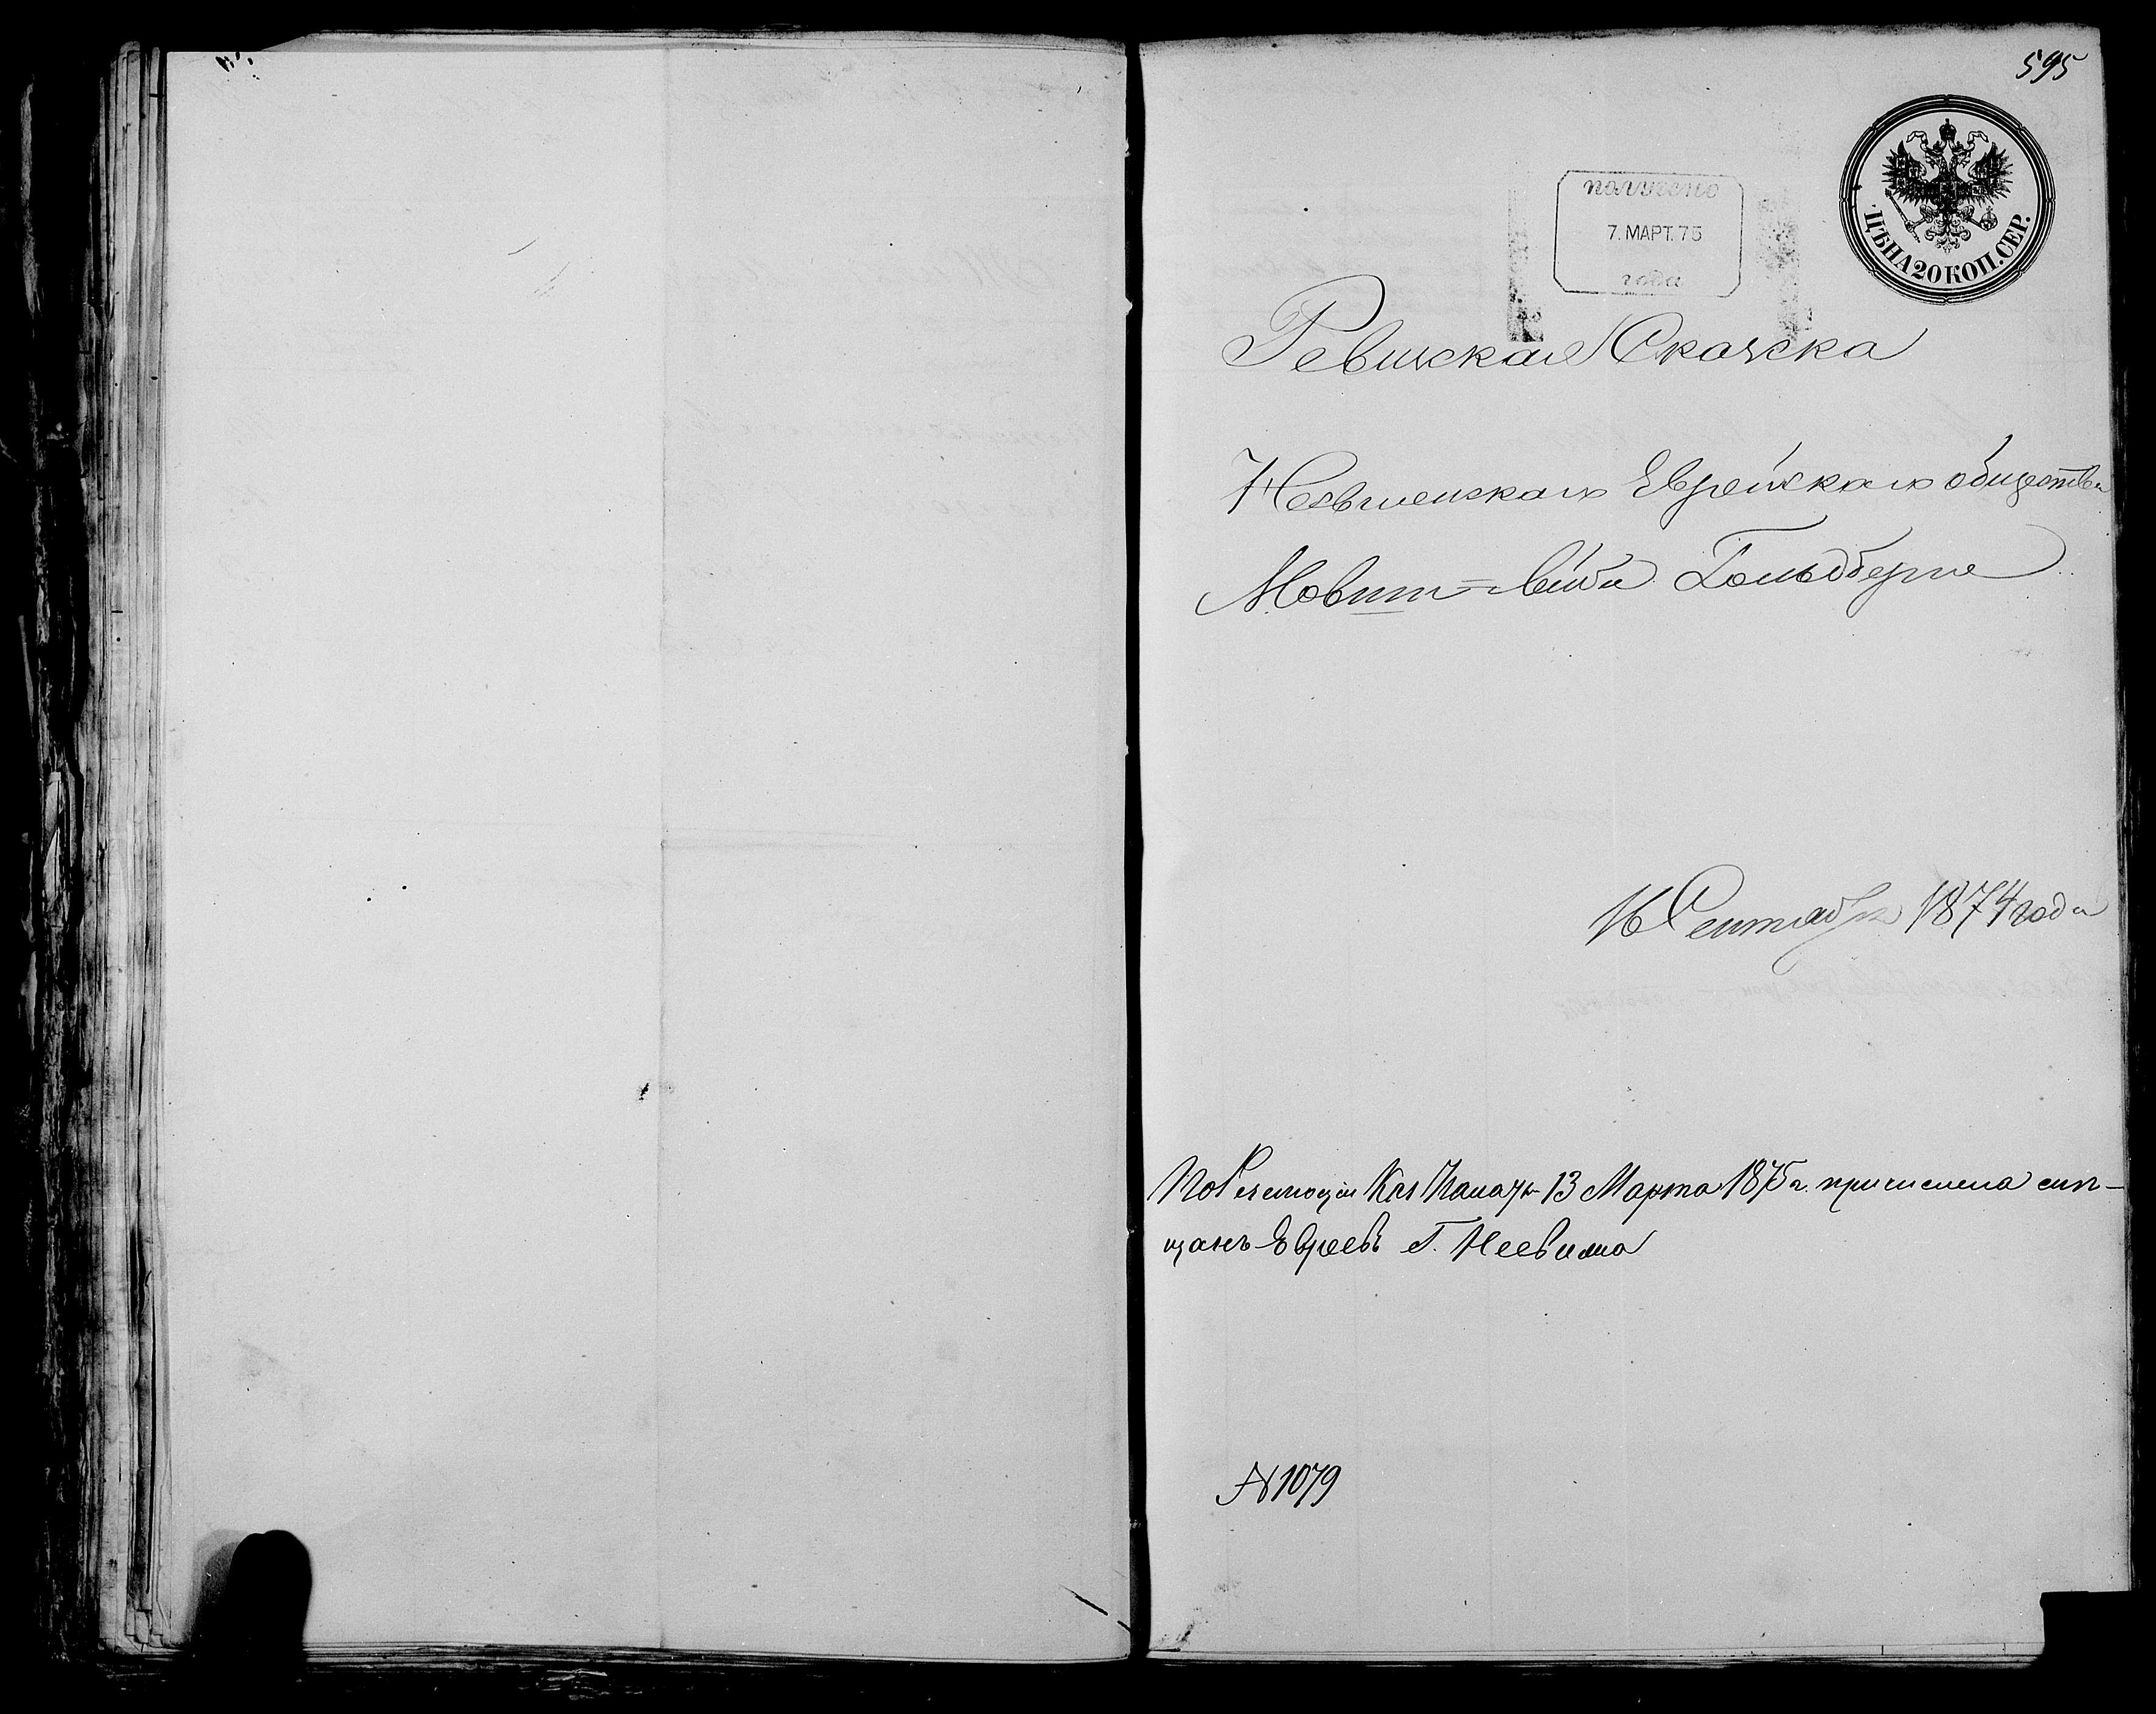 595
ЦѢНА 20 КОП. СЕР.
получено
7. МАРТ. 75
года
Ревизская Сказка
Несвижскаго Еврейскаго общества
Мовши Гольдберга
16 Сентября 1874 года
По Резолюціи Каз Палаты 13 Марта 1875 г. причислена
щанъ Евреевъ Г. Несвижа
№ 1079